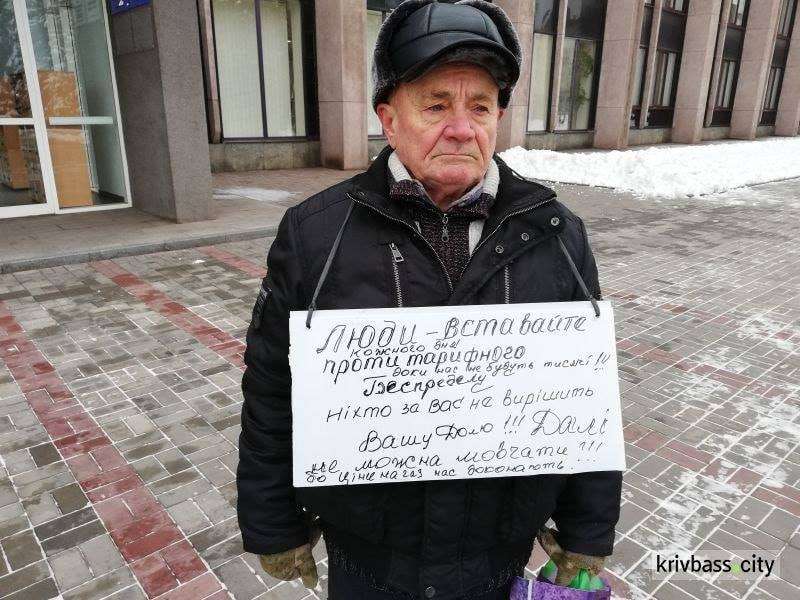 Люди - вставайте
кожного дня
проти тарифного
доки нас не будуть тисячі!!!
Беспределу
ніхто за Вас не вирішить
Вашу Долю!!! Далі
не можна мовчати!!!
бо ціни на газ нас доконають!!!
krivbass.city